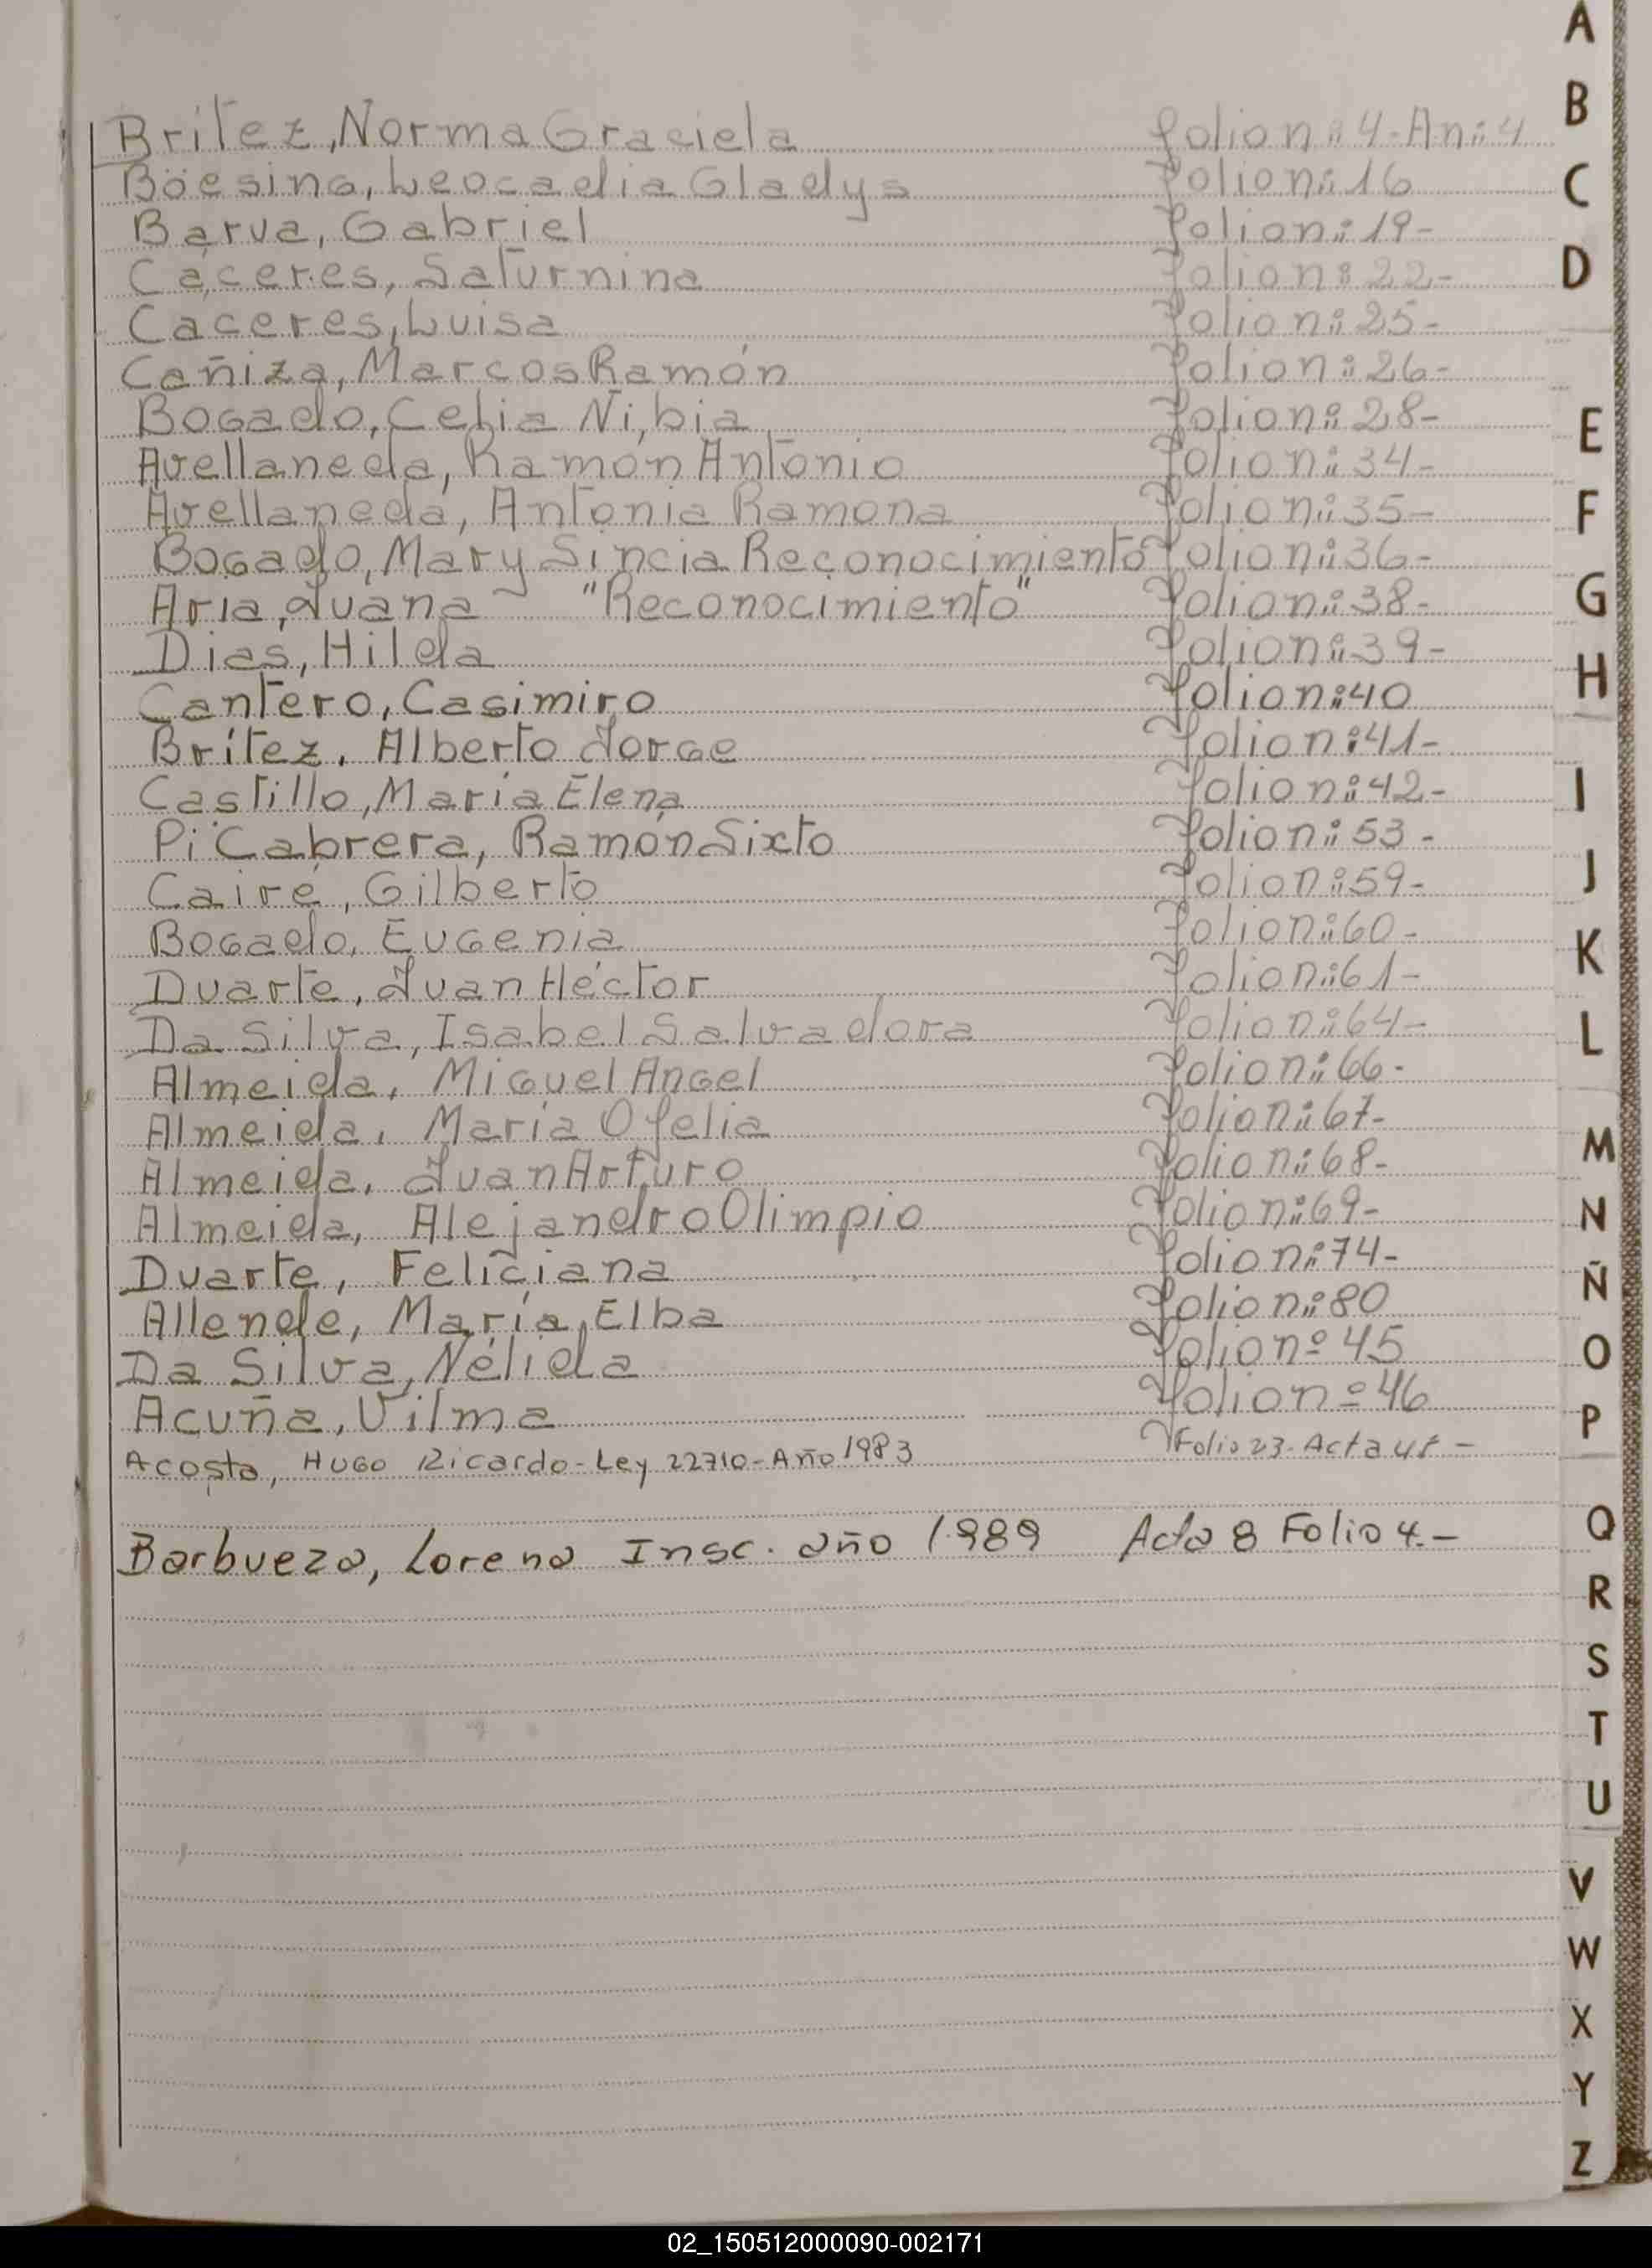 Britez, Norma Graciela Folio n: 4-An: 4
Böesing, Leocadia Gladys Folio n: 16
Barua, Gabriel Folio n: 19-
Cáceres, Saturnina Folio n: 22-
Caceres, Luisa Folio n: 25-
Cañiza, Marcos Ramón Folio n: 26-
Bogado, Celia Nibia Folio n: 28-
Avellaneda, Ramon Antonio Folio n: 34-
Avellaneda, Antonia Ramona Folio n: 35-
Bogado, Mary Sincia Reconocimiento Folio n: 36-
Aria, Juana "Reconocimiento" Folio n: 38-
Dias, Hilda Folio n: 39-
Cantero, Casimiro Folio n: 40
Britez, Alberto Jorge Folio n: 41-
Castillo, María Elena Folio n: 42-
Pi Cabrera, Ramón Sixto Folio n: 53-
Cairé, Gilberto Folio n: 59-
Bogado, Eugenia Folio n: 60-
Duarte, Juan Héctor Folio n: 61-
Da Silva, Isabel Salvadora Folio n: 64-
Almeida, Miguel Angel Folio n: 66-
Almeida, María Ofelia Folio n: 67-
Almeida, Juan Arturo Folio n: 68-
Almeida, Alejandro Olimpio Folio n: 69-
Duarte, Feliciana Folio n: 74-
Allende, María Elba Folio n: 80
Da Silva, Nélida Folio nº 45
Acuña, Vilma Folio nº 46
Acosta, Hugo Ricardo-Ley 22710-Año 1983 Folio 23-Acta 45-
Barbueza, Lorena Insc. año 1989 Acta 8 Folio 4.-
A
B
C
D
E
F
G
H
I
J
K
L
M
N
Ñ
O
P
Q
R
S
T
U
V
W
X
Y
Z
02_150512000090-002171